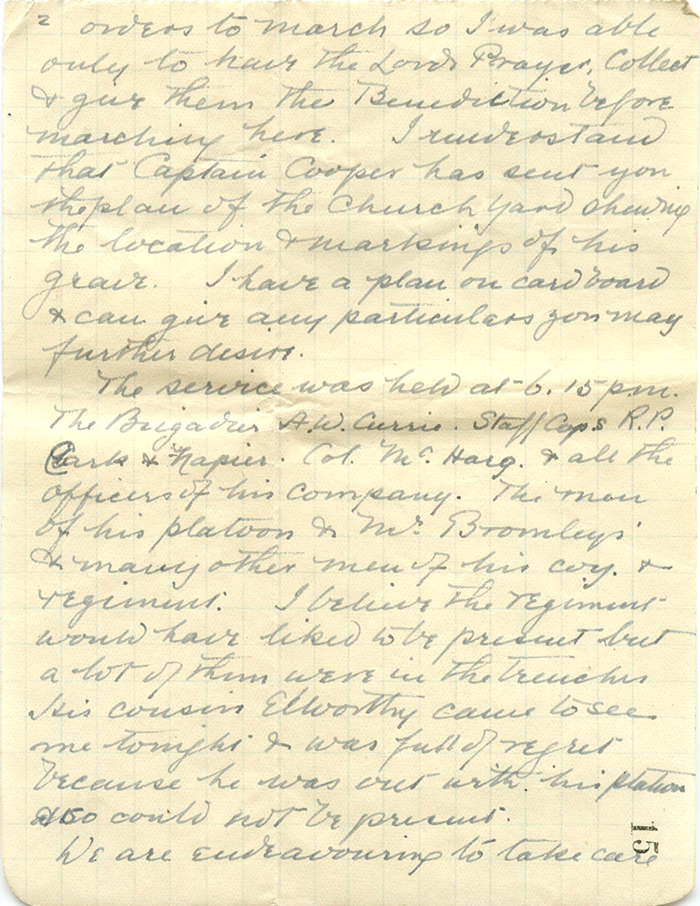 2 orders to march so I was able
only to have the Lords Prayer, Collect
& give them the Benediction before
marching here. I understand
that Captain Cooper has sent you
the plan of the Church Yard shewing
the location & markings of his
grave. I have a plan on cardboard
& can give any particulars you may
further desire.
The service was held at 6.15 p.m.
The Brigadier A.W. Currie. Staff Caps R.P.
Clark & Napier. Col. Mc. Harg. & all the
officers of his company. The men
of his platoon & Mr. Bromley's
& many other men of his coy. &
regiment. I believe the regiment
would have liked to be present but
a lot of them were in the trenches
His cousin Elworthy came to see
me tonight & was full of regret
because he was out with his platoon
& so could not be present.
We are endeavouring to take care